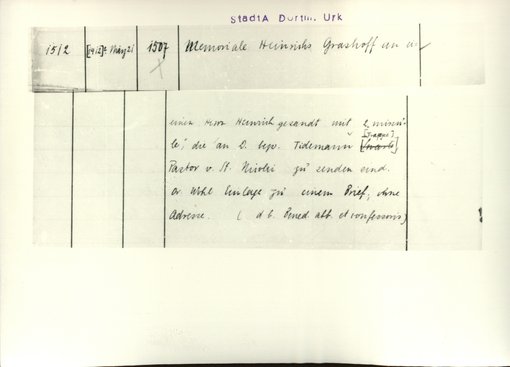 StadtA Dortm. Urk
1512 [1412]? März 21 1507 Memoriale Heinrichs Grashoff an
X
einen Herrn Heinrich gesandt mit 2
die an D. bezw. Tidemann [Trappe]
Pastor v. St. Nicolai zu senden sind.
Or Wohl Einlage zu einem Brief, ohne
Adresse. (d b. Bened abb. et confessoris)